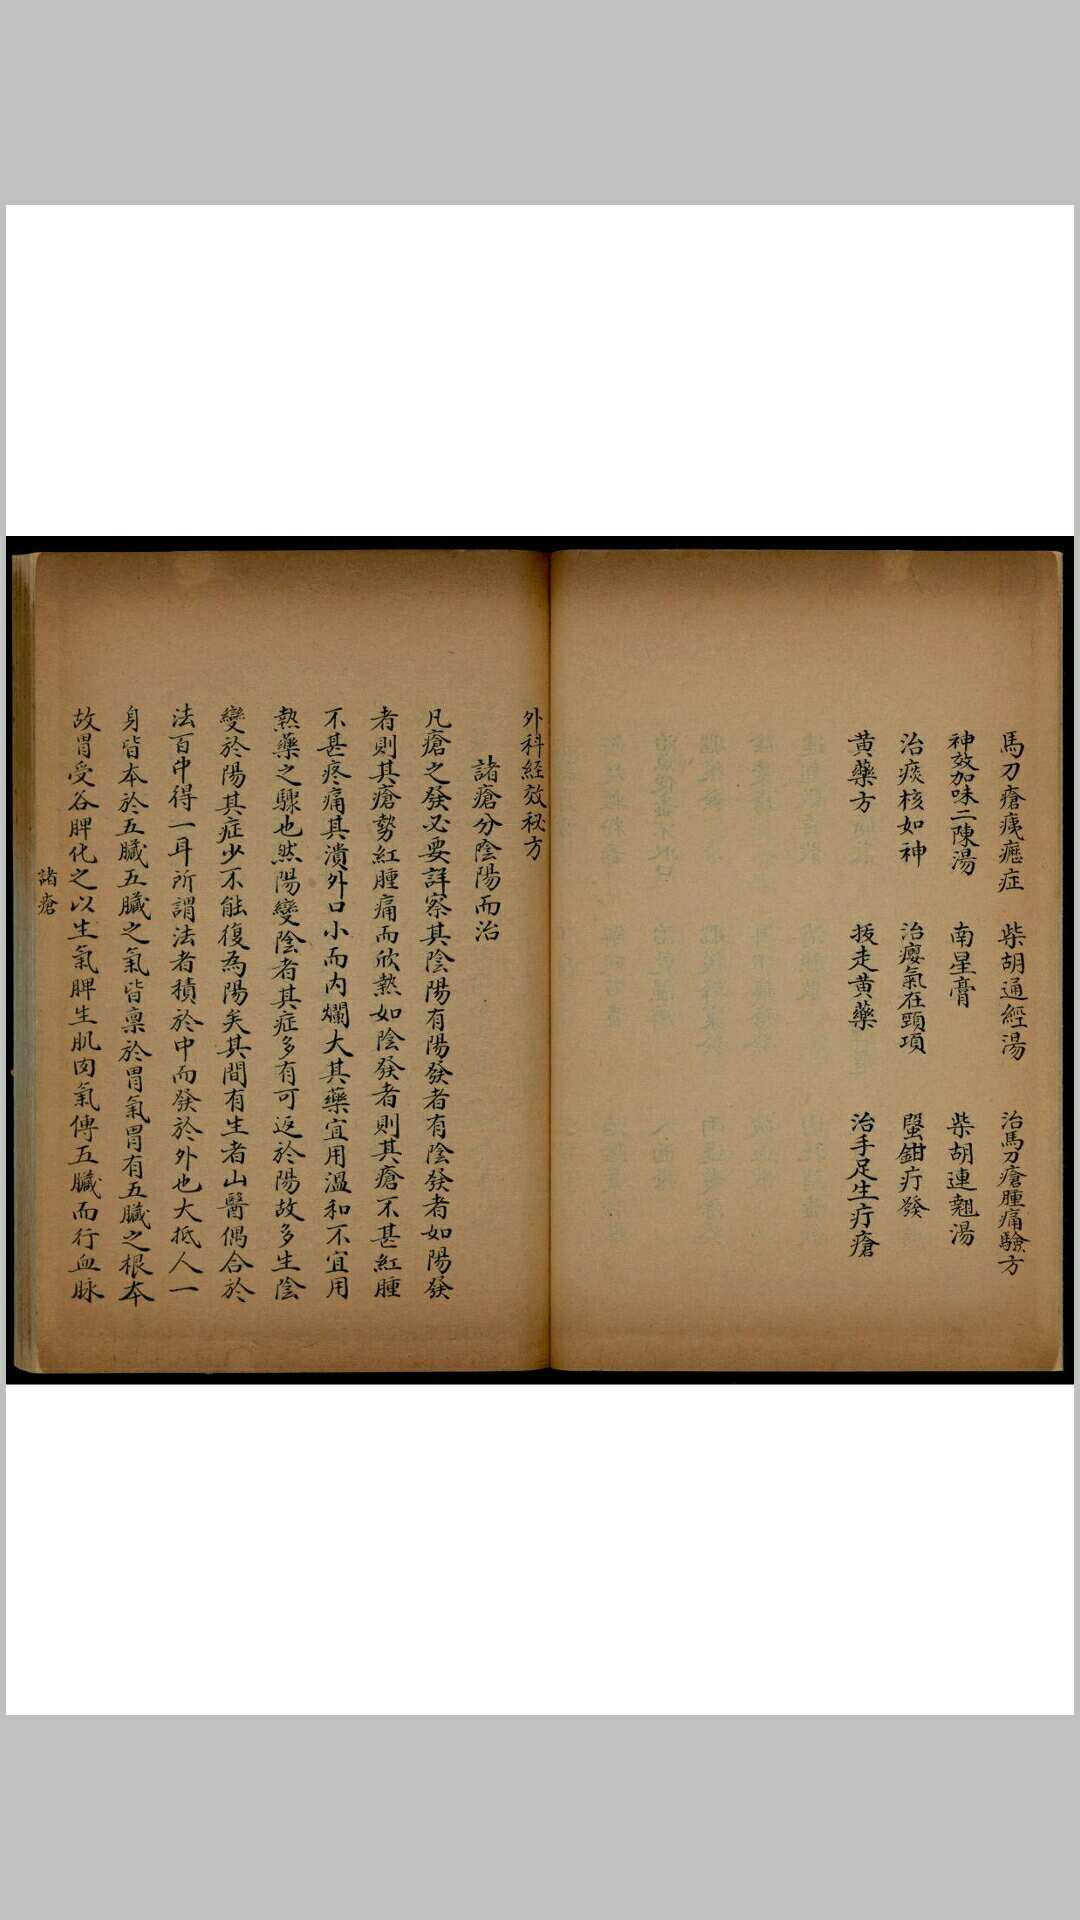 馬刀瘡痍癧症　柴胡通經湯　治馬刀瘡腫痛驗方
神效加味二陳湯　南星膏　柴胡連翹湯
治痰核如神　治癭氣在頸項　蜸鉗疔發
黄藥方　拔走黄藥　治手足生疔瘡
外科經效秘方
諸瘡分陰陽而治
凡瘡之發必要詳察其陰陽有陽發者有陰發者如陽發
者則其瘡勢紅腫痛而欣熱如陰發者則其瘡不甚紅腫
不甚疼痛其潰外口小而内爛大其藥宜用溫和不宜用
熱藥之驟也然陽變陰者其症多有可返於陽故多生陰
變於陽其症少不能復為陽矣其間有生者山醫偶合於
法百中得一耳所謂法者積於中而發於外也大抵人一
身皆本於五臟五臟之氣皆禀於胃氣胃有五臟之根本
故胃受谷脾化之以生氣脾生肌肉氣傳五臟而行血脉
諸瘡